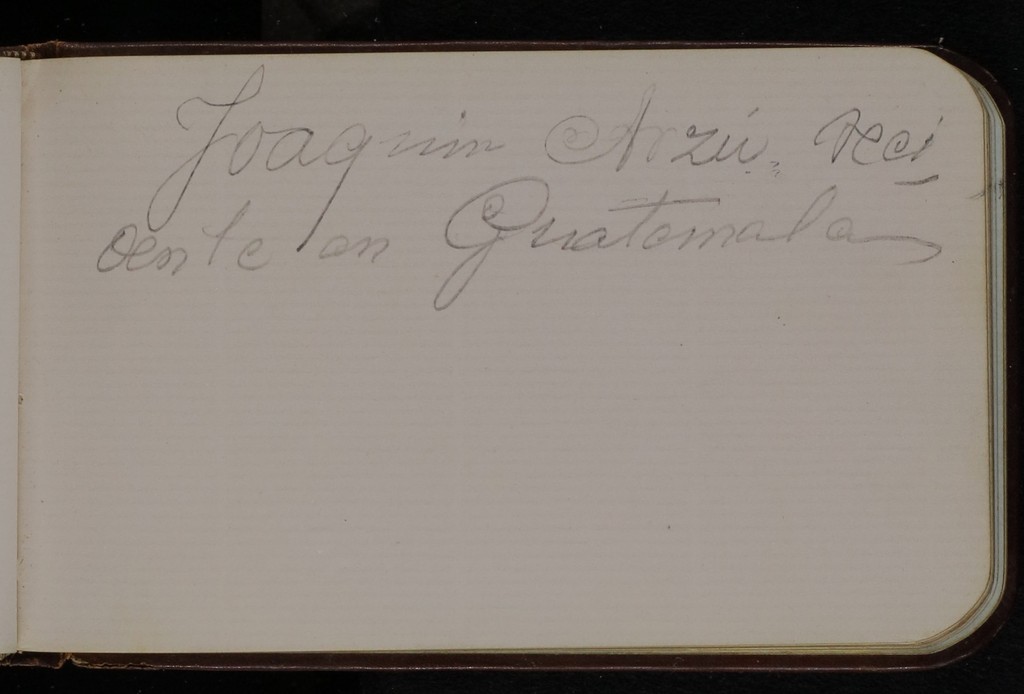 Joaquin Arzú. Reci
dente en Guatemala